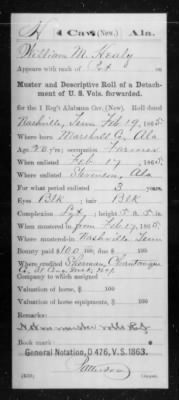 H 4 Cav. (New.) Ala.
William M. Healy
Appears with rank of Pvt on
Muster and Descriptive Roll of a Detach-
ment of U. S. Vols. forwarded.
for the 1 Reg't Alabama Cav. (New). Roll dated
Nashville, Tenn Feb 19, 1865.
Where born Marshall Co, Ala
Age 20 y'rs; occupation Farmer
When enlisted Feb 17, 1865.
Where enlisted Stevenson, Ala
For what period enlisted 3 years.
Eyes Blk; hair Blk
Complexion ; height 5 ft. 5 in.
When mustered in Feb 17, 1865.
Where mustered in Nashville Tenn
Bounty paid $100; due $ 100
Where credited Sherman, Chautauqua
Co, 31
Company to which assigned
Valuation of horse, $ 100
Valuation of horse equipments, $ 100
Remarks:
muster rolls
Book mark:
General Notation, D 476, V. S. 1863.